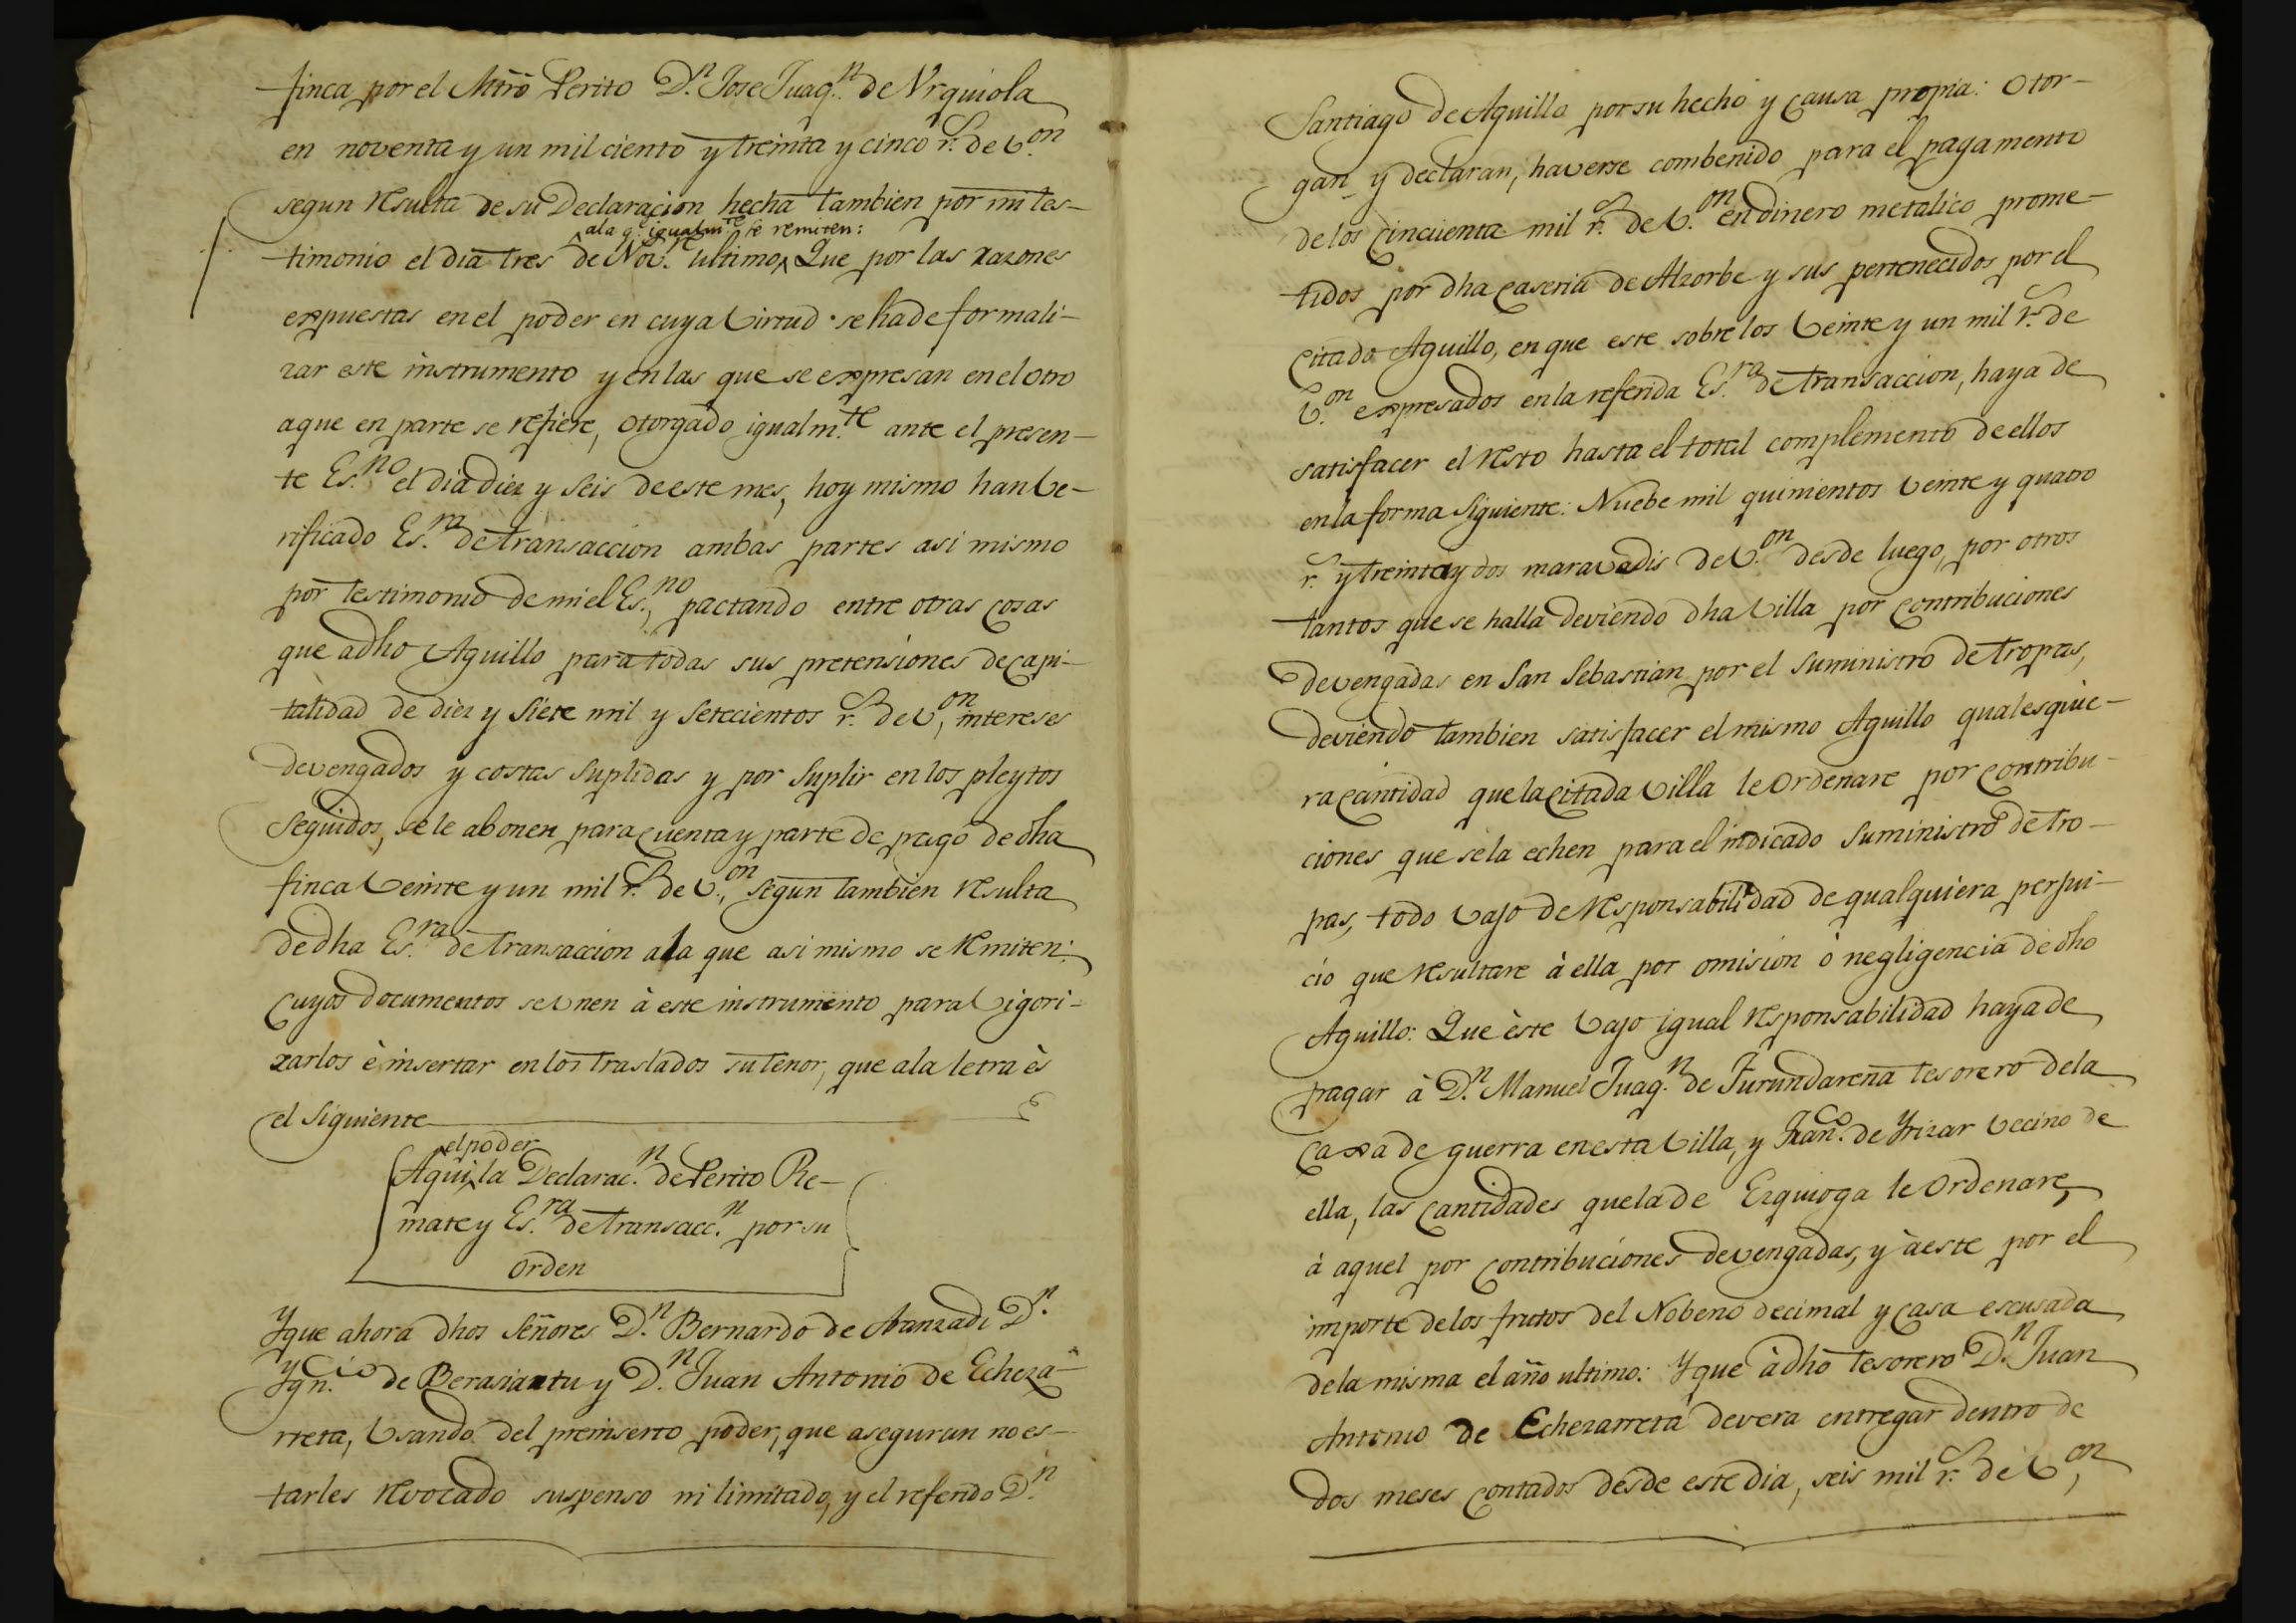 finca por el Mrõ Perito D.n Jose Juaq.n de Vrquiola
en noventa y un mil ciento y treinta y cinco r.s de v.on
segun resulta de su Declaracion hecha tambien por mi tes-
ala q.e igualm.te se remiten:
timonio el dia tres de Nov.re ultimo, Que por las razones
expuestas en el poder en cuya virtud se ha de formali-
zar este instrumento y en las que se expresan en el otro
aque en parte se refiere, otorgado igualm.te ante el presen-
te Es.no el dia diez y seis de este mes, hoy mismo han ve-
rificado Es.ra de transaccion ambas partes asi mismo
por testimonio de mi el Es.no, pactando entre otras cosas
que a dho Aguillo para todas sus pretensiones de capi-
talidad de diez y siete mil y setecientos r.s de v.on, intereses
devengados y costas suplidas y por suplir en los pleytos
seguidos, se le abonen para cuenta y parte de pago de dha
finca veinte y un mil r.s de v.on, segun tambien resulta
de dha Es.ra de transaccion a la que asi mismo se remiten:
cuyos documentos se unen à este instrumento para vigori-
zarlos è insertar en los traslados su tenor, que ala letra ès
el siguiente
el poder
Aqui la Declarac.n de Perito Re-
mate y Es.ra de transacc.n por su
orden
Y que ahora dhos Señores D.n Bernardo de Aranzadi D.n
Ygn.cio de Berasiartu y D.n Juan Antonio de Echeza-
rreta, Usando del preinserto poder, que aseguran no es-
tarles revocado suspenso ni limitado, y el referido D.n
Santiago de Aguillo por su hecho y causa propia: Otor-
gan y declaran, haverse combenido para el pagamento
de los cincuenta mil r.s de v.on en dinero metalico prome-
tidos por dha caseria de Alzorbe y sus pertenecidos por el
citado Aguillo, en que este sobre los veinte y un mil r.s de
v.on expresados en la referida Es.ra de transaccion, haya de
satisfacer el resto hasta el total complemento de ellos
en la forma siguiente: Nuebe mil quinientos veinte y quatro
r.s y treinta y dos maravedis de v.on desde luego, por otros
tantos que se halla deviendo dha villa por contribuciones
devengadas en San Sebastian por el suministro de tropas,
deviendo tambien satisfacer el mismo Aguillo qualesquie-
ra cantidad que la citada villa le ordenare por contribu-
ciones que se la echen para el indicado suministro de tro-
pas, todo vajo de responsabilidad de qualquiera perjui-
cio que resultare à ella por omision ò negligencia de dho
Aguillo: Que èste vajo igual responsabilidad haya de
pagar à D.n Manuel Juaq.n de Yurundarena tesorero de la
caxa de guerra en esta villa, y Fran.co de Yrizar vecino de
ella, las cantidades que la de Ezquioga le ordenare,
à aquel por contribuciones devengadas, y à este por el
importe de los frutos del Nobeno decimal y casa escusada
de la misma el año ultimo: Y que à dho tesorero D.n Juan
Antonio de Echezarreta devera entregar dentro de
dos meses contados desde este dia, seis mil r.s de v.on,